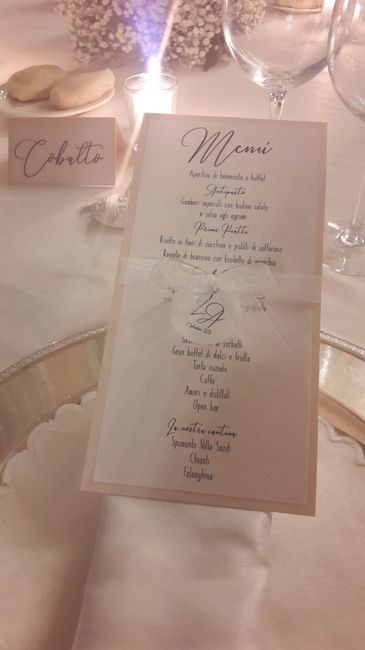 Cobalto
Menú
Aperitivo di benvenuto a buffet
Antipasto
Gamberi imperiali con budino salato
e salsa agli agrumi
Primi Piatti
Risotto ai fiori di zucchine e pistilli di zafferano
Raviolo di branzino con brodetto di
2A
Gran di sorbetti
Gran buffet di dolci e frutta
Torta nuziale
Caffe'
Amari e distillati
Open bar
La nostra cantina
Spumante Villa Sandi
Chianti
Falanghina